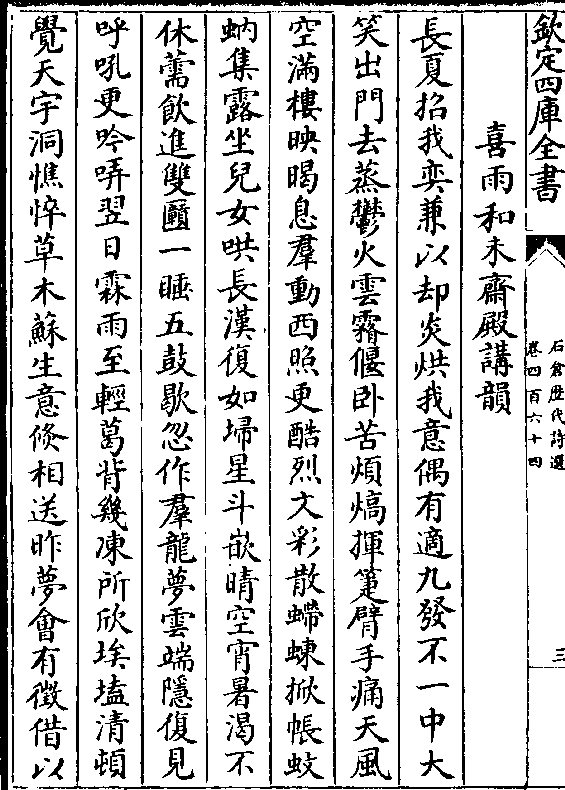 欽定四庫全書
石倉歷代詩選
卷四百六十四
三
喜雨和未齋殿講韻
長夏招我奕兼以却炎烘我意偶有適九發不一中大
笑出門去蒸鬱火雲霿偃卧苦煩熇揮箑臂手痛天風
空滿樓映暍息羣動西照更酷烈文彩散螮蝀掀帳蚊
蚋集露坐兒女哄長漢復如埽星斗嵌晴空宵暑渴不
休薷飲進雙匜一睡五鼓歇忽作羣龍夢雲端隱復見
呼吼更吟哢翌日霖雨至輕葛背幾凍所欣埃𡏖清頓
覺天宇洞憔悴草木蘇生意倐相送昨夢會有徵借以